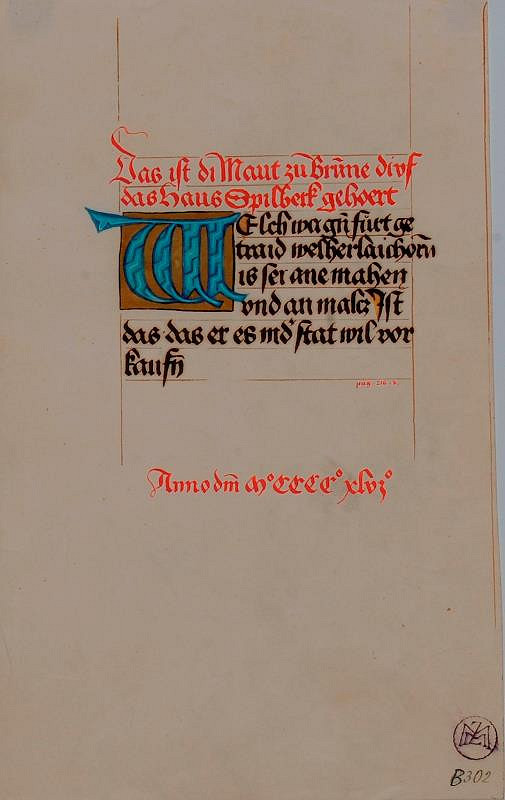 Das ist di Maut zu Brūne di vf
das Haus Spilberk gehoert
WElch wagn̄ fürt ge
traid welherlai chorn̄
is sei ane mahen
vnd an malcz Ist
das das er es in d' stat wil vor
kaufn̄
pag 216. b
Anno dm̄ MºCCCCº xlvjº
B302